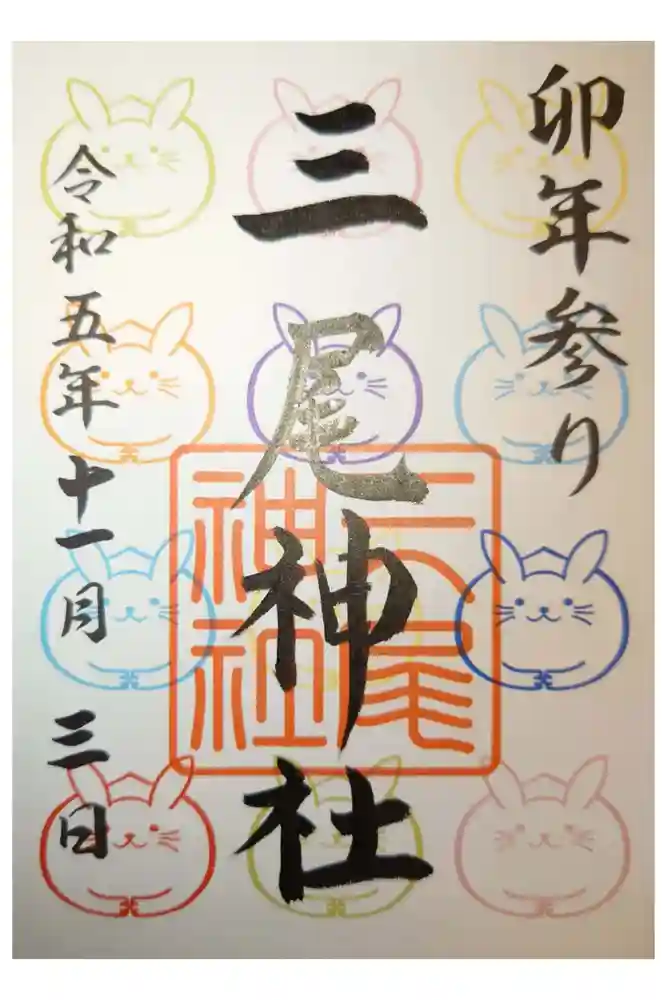 卯年参り
三尾神社
三尾神社
令和五年十一月三日